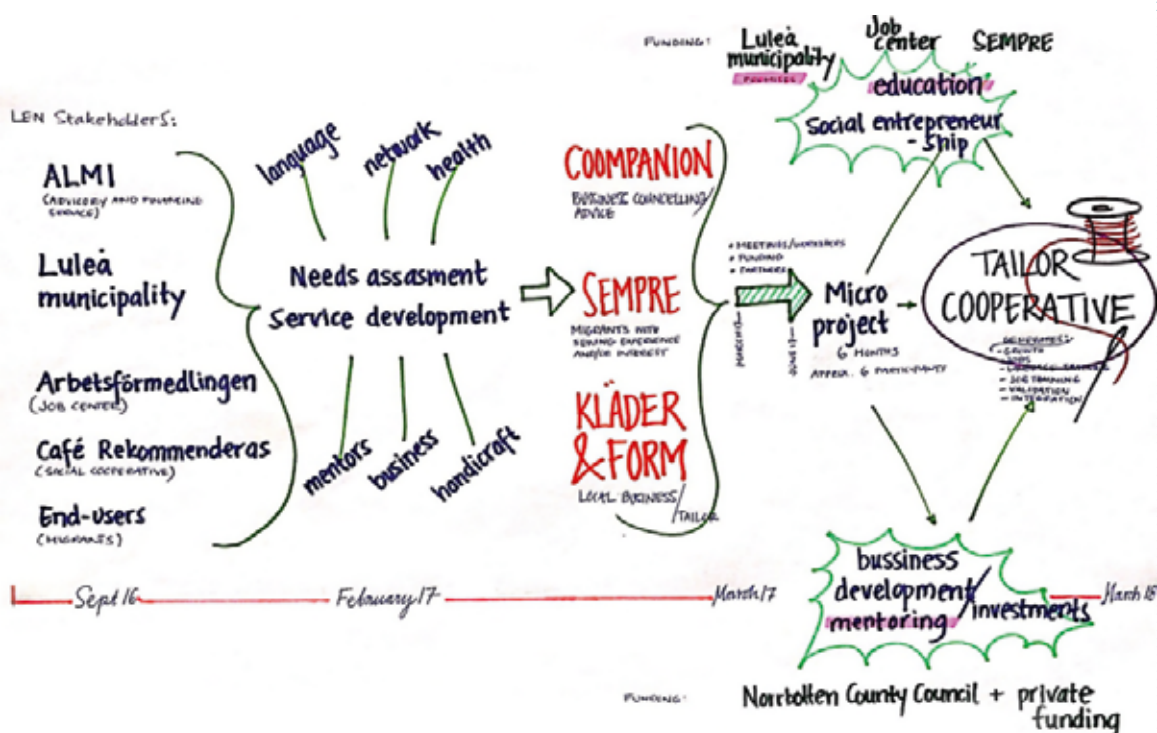 LEN Stakeholders:
ALMI
(ADVISORY AND FINANCING
SERVICE)
Luleå
municipality
Arbetsförmedlingen
(JOB CENTER)
Café Rekommenderas
(SOCIAL COOPERATIVE)
End-users
(MIGRANTS)
language
network
health
Needs assasment
Service development
mentors
business
handicraft
COOMPANION
BUSINESS COUNCELLING/
ADVICE
SEMPRE
MIGRANTS WITH
SEWING EXPERIENCE
AND/OR INTEREST
KLÄDER
&FORM
LOCAL BUSINESS/
TAILOR
• FUNDING
• PARTNERS
MARCH 17
JUNE 17
Micro
project
6 MONTHS
APPROX. 6 PARTICIPANTS
FUNDING:
Luleå
municipality
Job
center
SEMPRE
education
Social entrepreneur
-ship
TAILOR
COOPERATIVE
GENERATES:
- GROWTH
- JOBS
- JOB TRAINING
- VALIDATION
- INTEGRATION
bussiness
development/
mentoring
investments
Sept 16
February 17
March 17
March 18
FUNDING:
Norrbotten County Council + private
funding